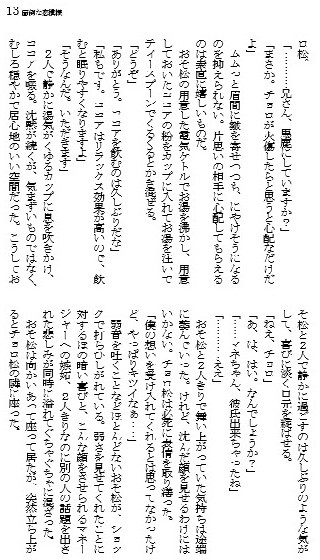 13 面倒な恋模様
ロ松。
「………兄さん、馬鹿にしていますか？」
「まさか。チョロが火傷したらと思うと心配なだけだ
よ」
ムムっと眉間に皺を寄せつつも、にやけそうになる
のを抑えられない。片思いの相手に心配してもらえる
のは素直に嬉しいものだ。
おそ松の用意した電気ケトルでお湯を沸かし、用意
しておいたココアの粉をカップに入れてお湯を注いで
ティースプーンでくるくるとかき混ぜる。
「どうぞ」
「ありがとう。ココアを飲むのは久しぶりだな」
「私もです。ココアはリラックス効果が高いので、飲
むと眠りやすくなりますよ」
「そうなんだ。いただきます」
２人で静かに湯気がくゆるカップに息を吹きかけ、
ココアを啜る。沈黙が続くが、気まずいものではなく、
むしろ穏やかで居心地のいい空間だった。こうしてお
そ松と２人で静かに過ごすのは久しぶりのような気が
して、喜びに淡く口元を綻ばせる。
「ねえ、チョロ」
「あ、はい。なんでしょうか？」
「……マネちゃん、彼氏出来ちゃったね」
「………ええ」
おそ松と２人きりで舞い上がっていた気持ちは途端
に萎んでいった。けれど、沈んだ顔を見せるわけには
いかない。チョロ松は必死に表情を取り繕った。
「僕の想いを受け入れてくれるとは思ってなかったけ
ど、やっぱりキツイなぁ…」
弱音を吐くことなどほとんどないおそ松が、ショッ
クで打ちひしがれている。弱さを見せてくれたことに
対するほの暗い喜びと、こんな顔をさせられるマネー
ジャーへの嫉妬、２人きりなのに別の人の話題を出さ
れた悲しみが同時に溢れてくちゃぐちゃに混ざった。
おそ松は向かいあって座って居たが、突然立ち上が
るとチョロ松の隣に座った。